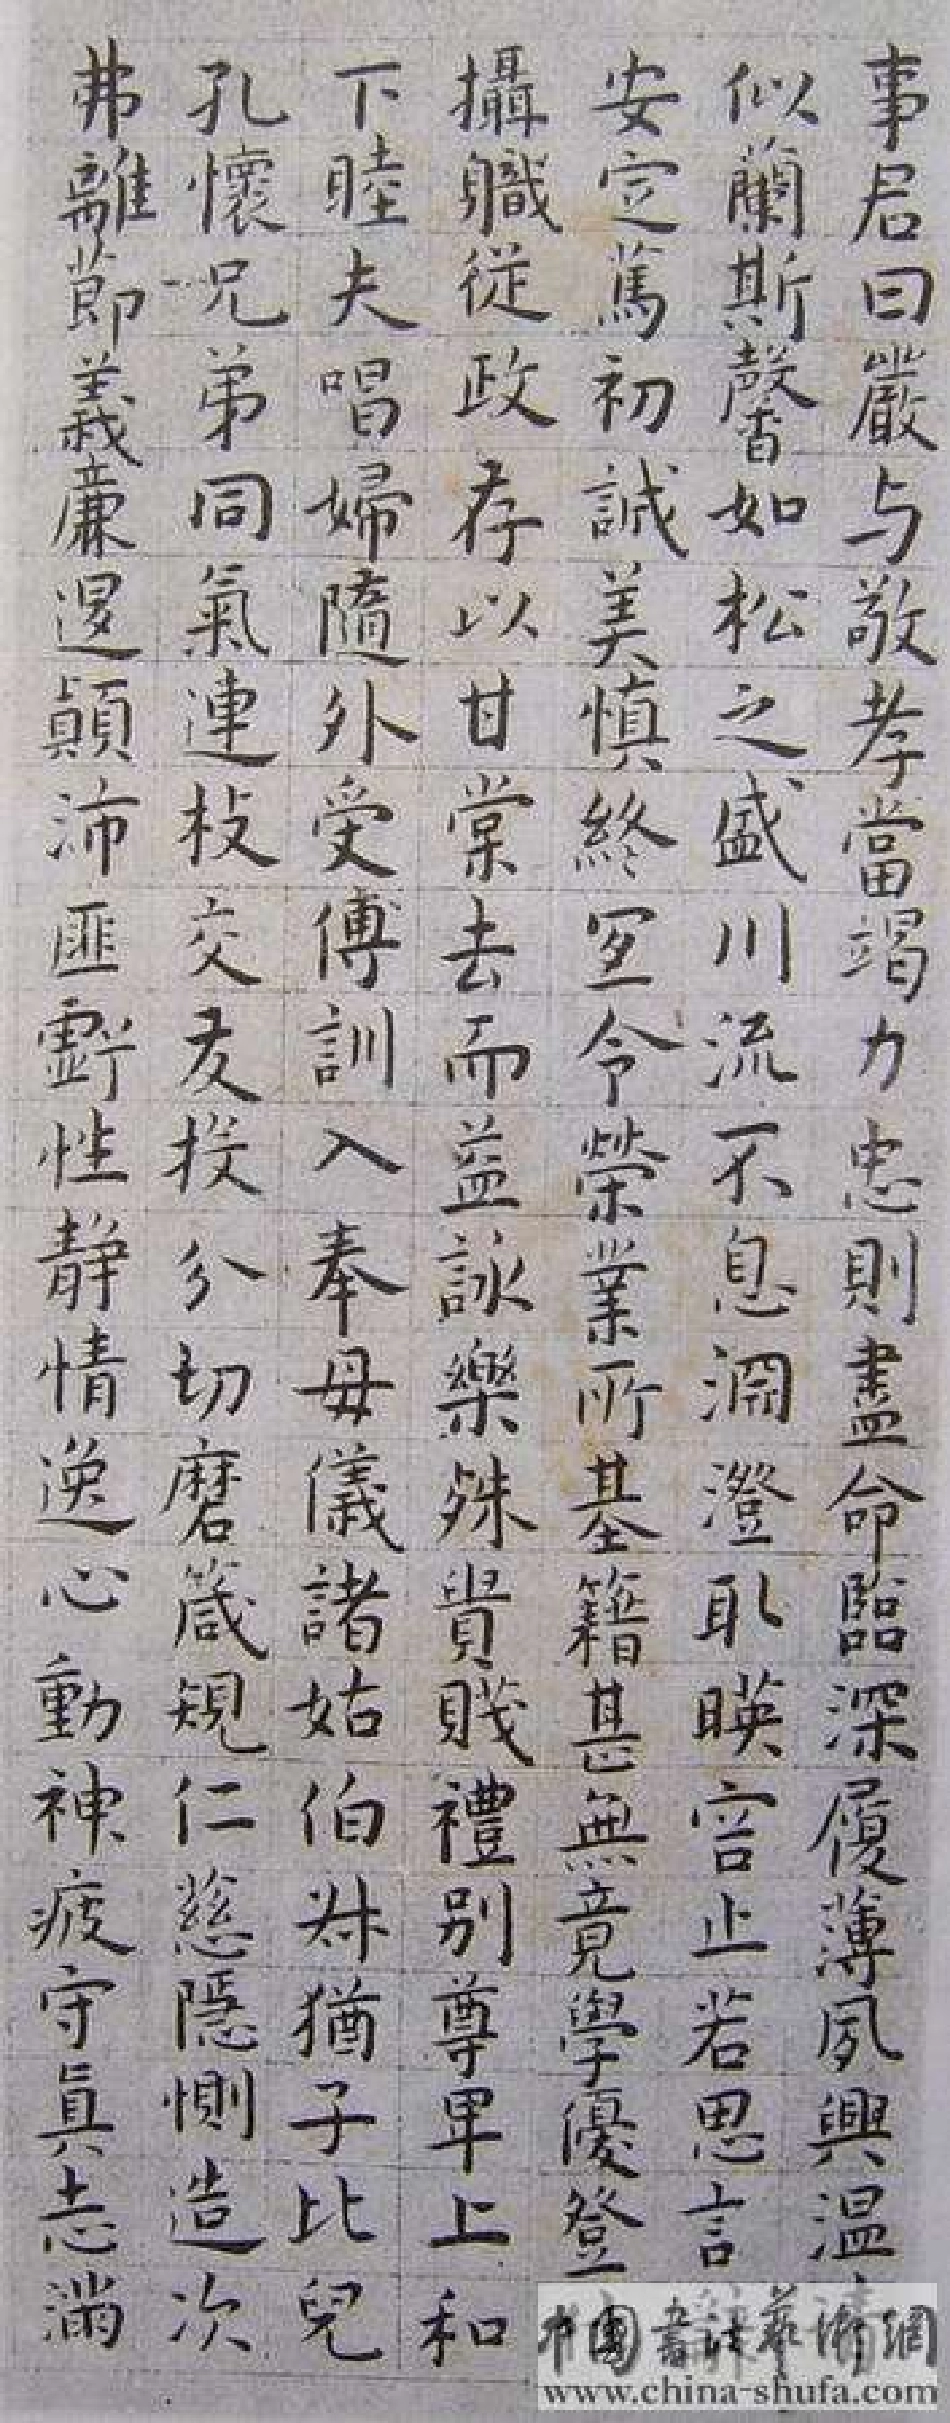 事君曰嚴与敬孝當竭力忠則盡命臨深履薄夙興温
似蘭斯馨如松之盛川流不息淵澄取暎容止若思言
安定篤初誠美慎終宜令榮業所基籍甚無竟學優登
攝職從政存以甘棠去而益詠樂殊貴賤禮別尊卑上和
下睦夫唱婦隨外受傅訓入奉母儀諸姑伯叔猶子比兒
孔懷兄弟同氣連枝交友投分切磨箴規仁慈隱惻造次
弗離節義廉退顛沛匪虧性静情逸心動神疲守真志滿
中國書法藝術網
www.china-shufa.com